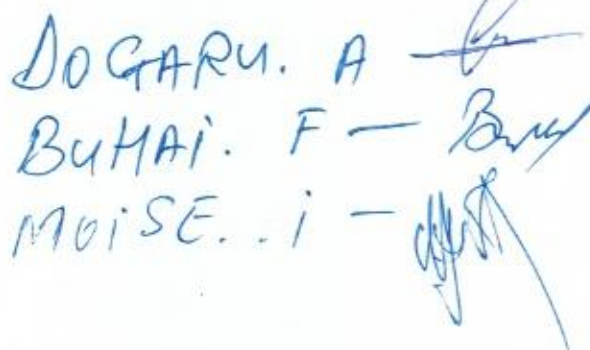 DOGARU. A –
BUHAI. F –
MOISE.. i –